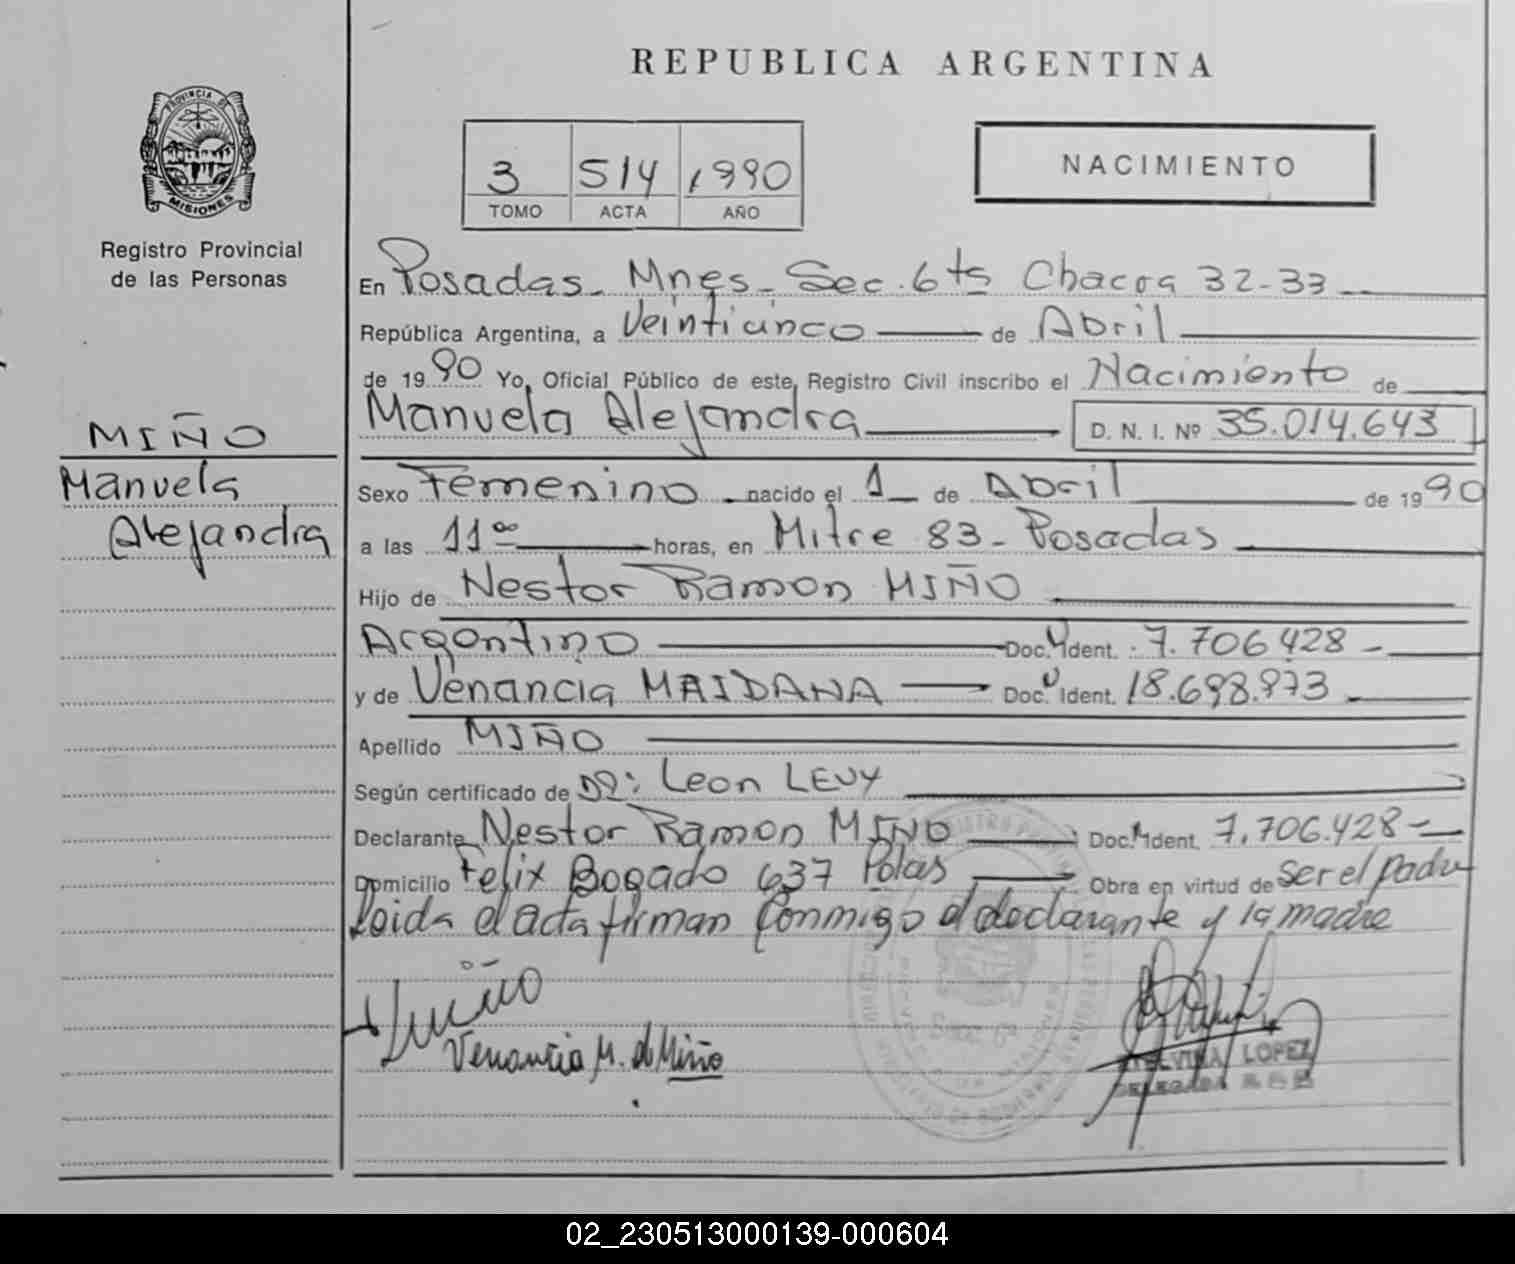 REPUBLICA ARGENTINA
PROVINCIA DE MISIONES
Registro Provincial
de las Personas
3 514 1990
TOMO ACTA AÑO
NACIMIENTO
En Posadas - Mnes - Sec. 6ts Chacra 32-33
República Argentina, a Veinticinco de Abril
de 1990 Yo, Oficial Público de este, Registro Civil inscribo el Nacimiento de
Manuela Alejandra D. N. I. Nº 35.014.643
MIÑO
Manuela
Alejandra
Sexo Femenino nacido el 1 de Abril de 1990
a las 11oo horas, en Mitre 83 - Posadas
Hijo de Nestor Ramon MIÑO
Argentino Doc. Ident. 7.706428
y de Venancia MAIDANA Doc. Ident. 18.698.973
Apellido MIÑO
Según certificado de DR: Leon LEVY
Declarante Nestor Ramon MIÑO Doc. Ident. 7.706.428
Domicilio Felix Bogado 637 Pdas Obra en virtud de ser el padre
Leida el acta firman Conmigo el declarante y la madre
Miño
Venancia M. de Miño
LOPEZ
DELEGADA
02_230513000139-000604